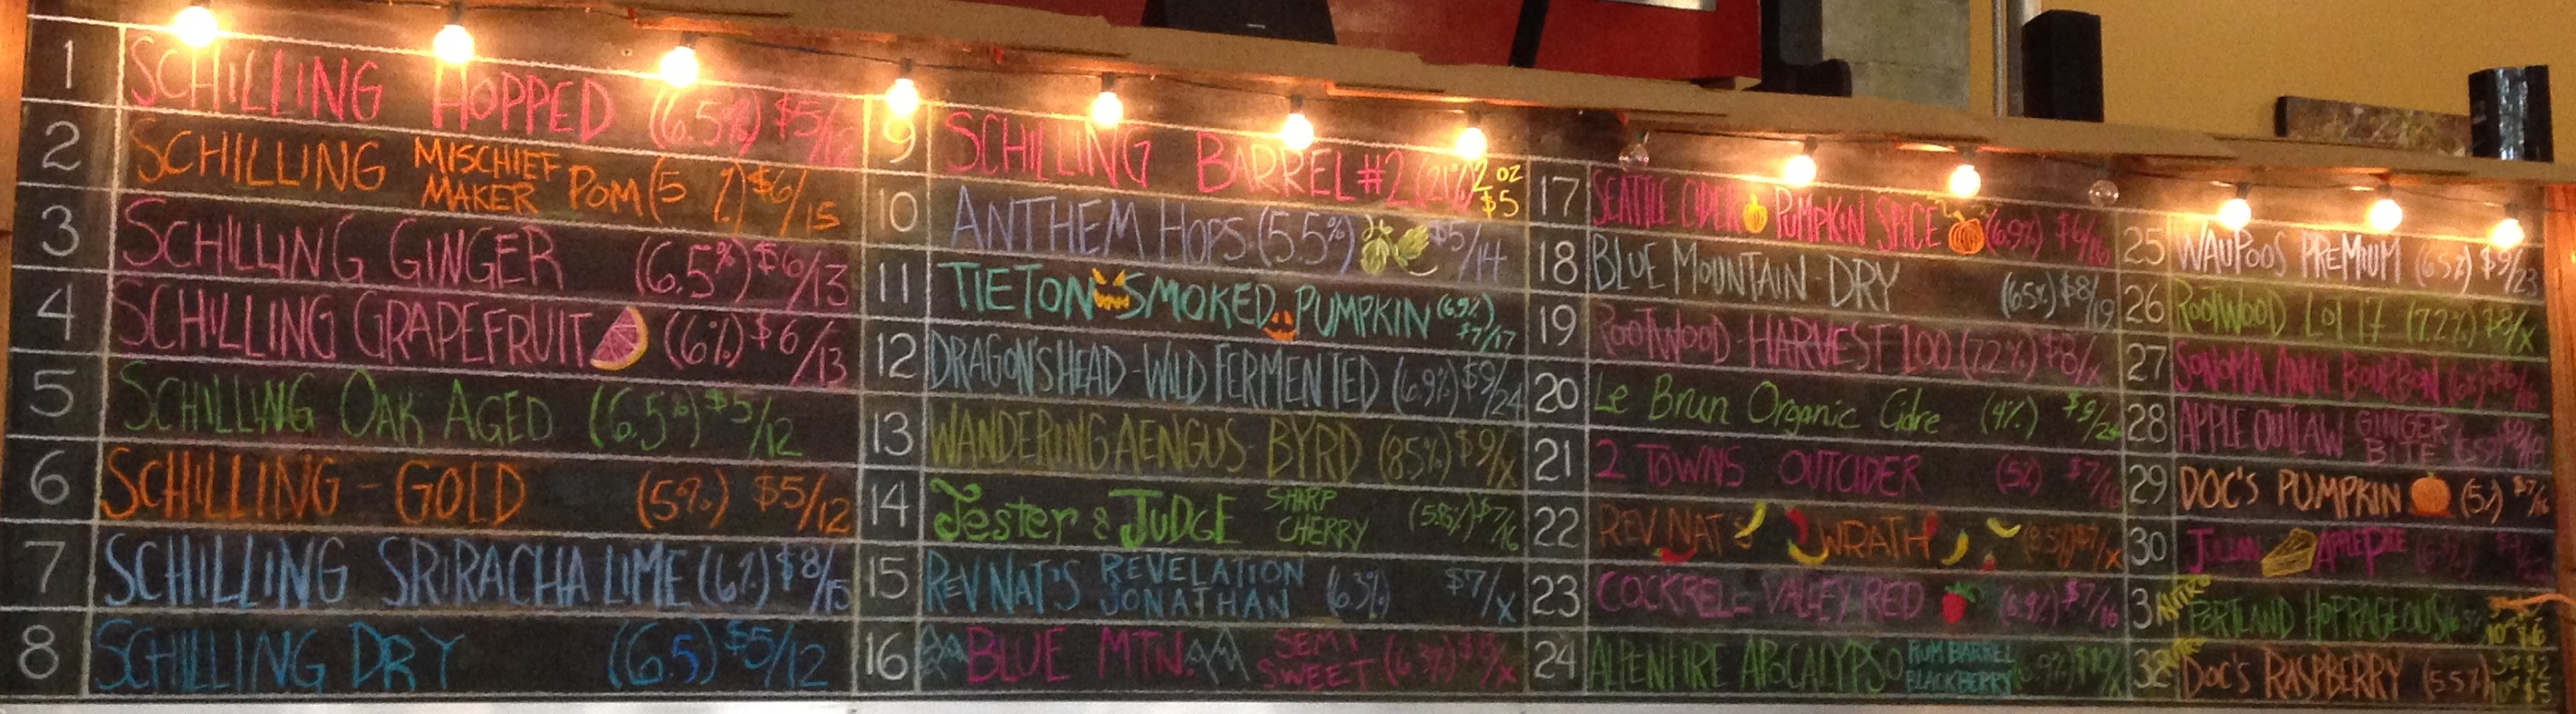 1 SCHILLING HOPPED (6.5%) $5/12
2 SCHILLING MISCHIEF MAKER POM (5 %) $6/15
3 SCHILLING GINGER (6.5%) $6/13
4 SCHILLING GRAPEFRUIT (6%) $6/13
5 SCHILLING OAK AGED (6.5%) $5/12
6 SCHILLING - GOLD (5%) $5/12
7 SCHILLING SRIRACHA LIME (6%) $8/15
8 SCHILLING DRY (6.5) $5/12
9 SCHILLING BARREL #2 (21%) 2 OZ $5
10 ANTHEM HOPS (5.5%) $5/14
11 TIETON SMOKED PUMPKIN (6.9%) $7/17
12 DRAGON'S HEAD - WILD FERMENTED (6.9%) $9/24
13 WANDERING AENGUS - BYRD (8.5%) $9/X
14 Jester & JUDGE SHARP CHERRY (5.8%) $7/16
15 REV NAT'S REVELATION JONATHAN (6.3%) $7/X
16 BLUE MTN. SEMI SWEET (6.3%) /X
17 SEATTLE CIDER PUMPKIN SPICE (6.9%) $6/16
18 BLUE MOUNTAIN - DRY (6.5%) $8/19
19 ROOTWOOD - HARVEST 100 (7.2%) $8/X
20 Le Brun Organic Cidre (4%) $9/
21 2 TOWNS OUTCIDER (5%) $7/16
22 REV NAT'S WRATH (8.5%) $7/X
23 COCKRELL - VALLEY RED (6.9%) $7/16
24 ALPENFIRE APOCALYPSO RUM BARREL BLACKBERRY (6.9%) $10/X
25 WAUPOOS PREMIUM (6.5%) $9/23
26 ROOTWOOD LOT 17 (7.2%) $8/X
27 SONOMA ANVIL BOURBON (6%) $6/16
28 APPLE OUTLAW GINGER BITE (5.5%)
29 DOC'S PUMPKIN (5%) $7/16
30 JULIAN APPLE PIE
3 NITRO PORTLAND HOPRAGEOUS 10oz $6
32 NITRO DOC'S RASPBERRY (5.5%) 3oz $2 10oz $5